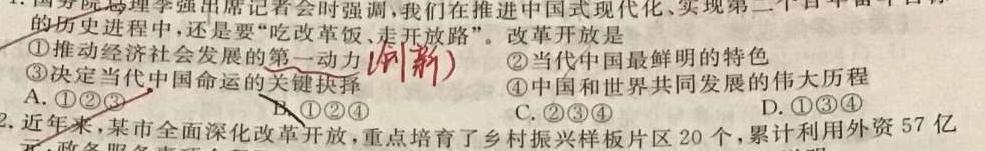 国务院总理李强出席记者会时强调,我们在推进中国式现代化、实现第二个百年奋斗目标
的历史进程中,还是要“吃改革饭、走开放路”。改革开放是
①推动经济社会发展的第一动力(创新) ②当代中国最鲜明的特色
③决定当代中国命运的关键抉择 ④中国和世界共同发展的伟大历程
A. ①②③ B. ①②④ C. ②③④ D. ①③④
2. 近年来,某市全面深化改革开放,重点培育了乡村振兴样板片区 20 个,累计利用外资 57 亿